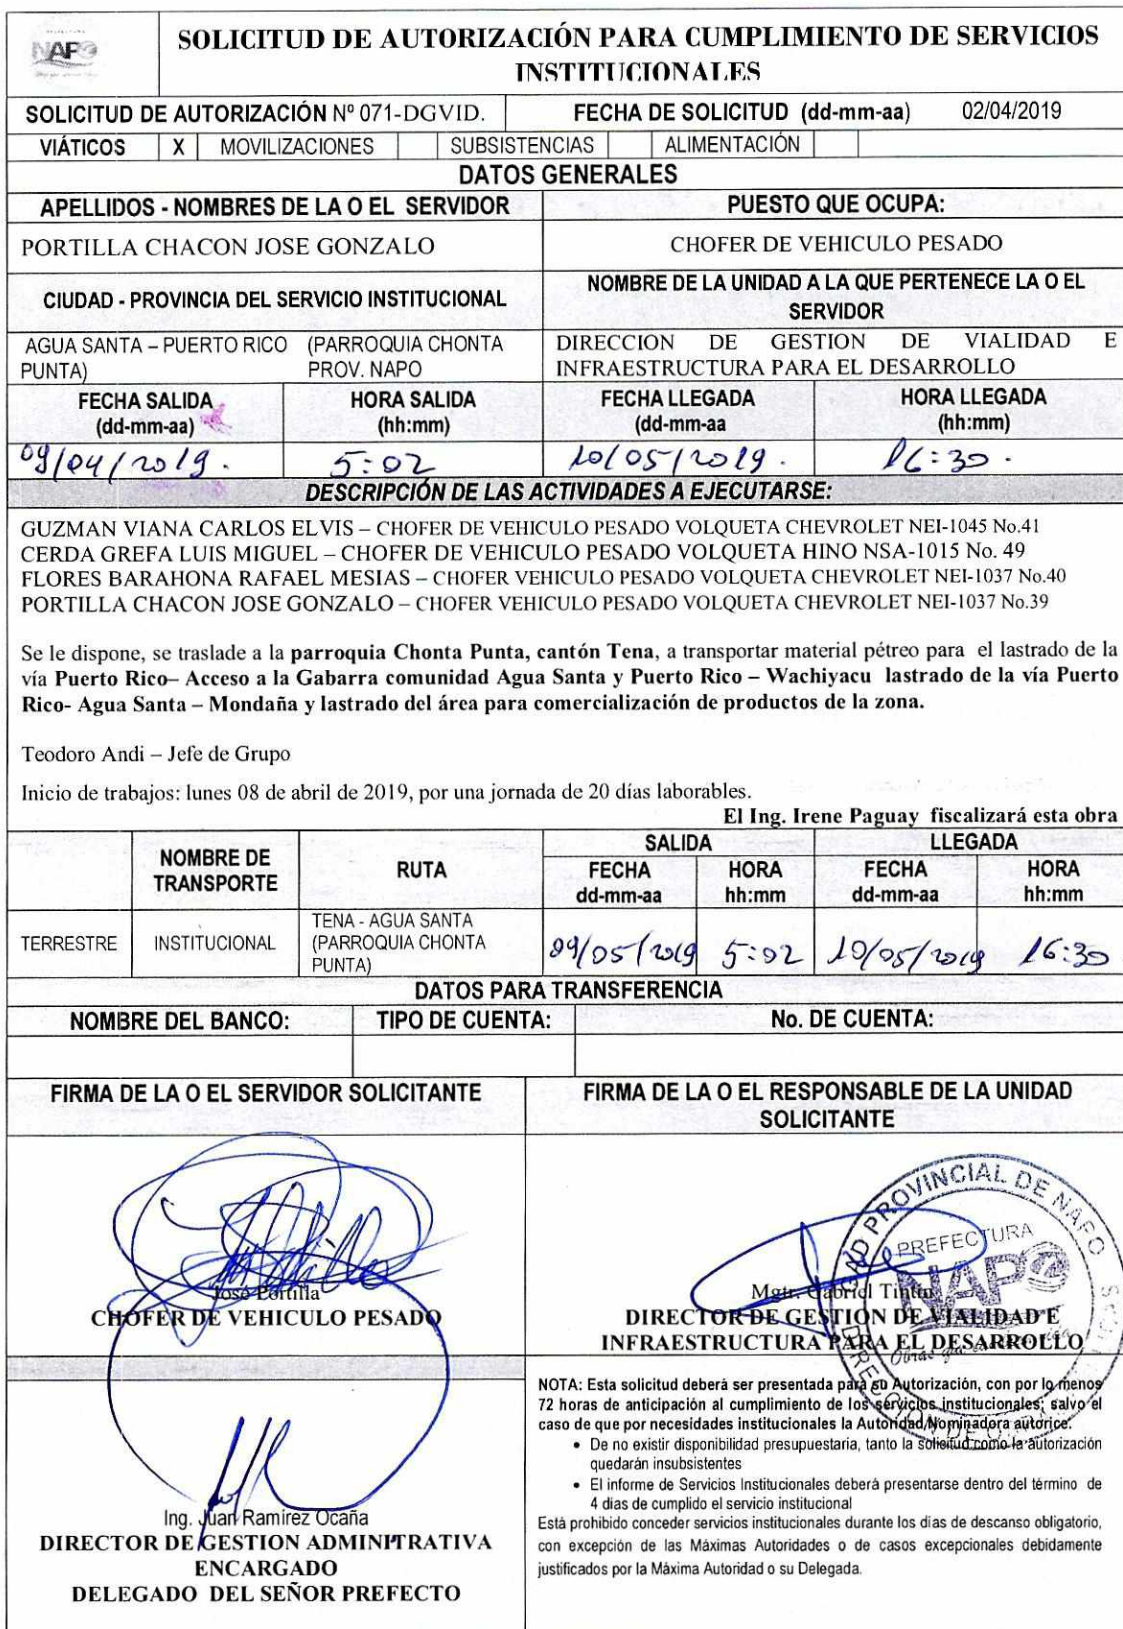 NAPO
SOLICITUD DE AUTORIZACIÓN PARA CUMPLIMIENTO DE SERVICIOS
INSTITUCIONALES
SOLICITUD DE AUTORIZACIÓN Nº 071-DGVID. FECHA DE SOLICITUD (dd-mm-aa) 02/04/2019
VIÁTICOS X MOVILIZACIONES SUBSISTENCIAS ALIMENTACIÓN
DATOS GENERALES
APELLIDOS - NOMBRES DE LA O EL SERVIDOR PUESTO QUE OCUPA:
PORTILLA CHACON JOSE GONZALO CHOFER DE VEHICULO PESADO
CIUDAD - PROVINCIA DEL SERVICIO INSTITUCIONAL NOMBRE DE LA UNIDAD A LA QUE PERTENECE LA O EL
SERVIDOR
AGUA SANTA – PUERTO RICO (PARROQUIA CHONTA DIRECCION DE GESTION DE VIALIDAD E
PUNTA) PROV. NAPO INFRAESTRUCTURA PARA EL DESARROLLO
FECHA SALIDA HORA SALIDA FECHA LLEGADA HORA LLEGADA
(dd-mm-aa) (hh:mm) (dd-mm-aa (hh:mm)
09/04/2019. 5:02 10/05/2019. 16:30.
DESCRIPCIÓN DE LAS ACTIVIDADES A EJECUTARSE:
GUZMAN VIANA CARLOS ELVIS – CHOFER DE VEHICULO PESADO VOLQUETA CHEVROLET NEI-1045 No.41
CERDA GREFA LUIS MIGUEL – CHOFER DE VEHICULO PESADO VOLQUETA HINO NSA-1015 No. 49
FLORES BARAHONA RAFAEL MESIAS – CHOFER VEHICULO PESADO VOLQUETA CHEVROLET NEI-1037 No.40
PORTILLA CHACON JOSE GONZALO – CHOFER VEHICULO PESADO VOLQUETA CHEVROLET NEI-1037 No.39
Se le dispone, se traslade a la parroquia Chonta Punta, cantón Tena, a transportar material pétreo para el lastrado de la
vía Puerto Rico– Acceso a la Gabarra comunidad Agua Santa y Puerto Rico – Wachiyacu lastrado de la vía Puerto
Rico- Agua Santa – Mondaña y lastrado del área para comercialización de productos de la zona.
Teodoro Andi – Jefe de Grupo
Inicio de trabajos: lunes 08 de abril de 2019, por una jornada de 20 días laborables.
El Ing. Irene Paguay fiscalizará esta obra
SALIDA LLEGADA
NOMBRE DE TRANSPORTE RUTA FECHA dd-mm-aa HORA hh:mm FECHA dd-mm-aa HORA hh:mm
TENA - AGUA SANTA
TERRESTRE INSTITUCIONAL (PARROQUIA CHONTA 09/05/2019 5:02 10/05/2019 16:30
PUNTA)
DATOS PARA TRANSFERENCIA
NOMBRE DEL BANCO: TIPO DE CUENTA: No. DE CUENTA:
FIRMA DE LA O EL SERVIDOR SOLICITANTE FIRMA DE LA O EL RESPONSABLE DE LA UNIDAD
SOLICITANTE
GAD PROVINCIAL DE NAPO
PREFECTURA
NAPO
José Portilla
CHOFER DE VEHICULO PESADO
Mgtr. Gabriel
DIRECTOR DE GESTION DE VIALIDAD E
INFRAESTRUCTURA PARA EL DESARROLLO
NOTA: Esta solicitud deberá ser presentada para su Autorización, con por lo menos
72 horas de anticipación al cumplimiento de los servicios institucionales; salvo el
caso de que por necesidades institucionales la Autoridad Nominadora autorice.
• De no existir disponibilidad presupuestaria, tanto la solicitud como la autorización
quedarán insubsistentes
• El informe de Servicios Institucionales deberá presentarse dentro del término de
4 dias de cumplido el servicio institucional
Está prohibido conceder servicios institucionales durante los días de descanso obligatorio,
con excepción de las Máximas Autoridades o de casos excepcionales debidamente
justificados por la Máxima Autoridad o su Delegada.
Ing. Juan Ramirez Ocaña
DIRECTOR DE GESTION ADMINITRATIVA
ENCARGADO
DELEGADO DEL SEÑOR PREFECTO